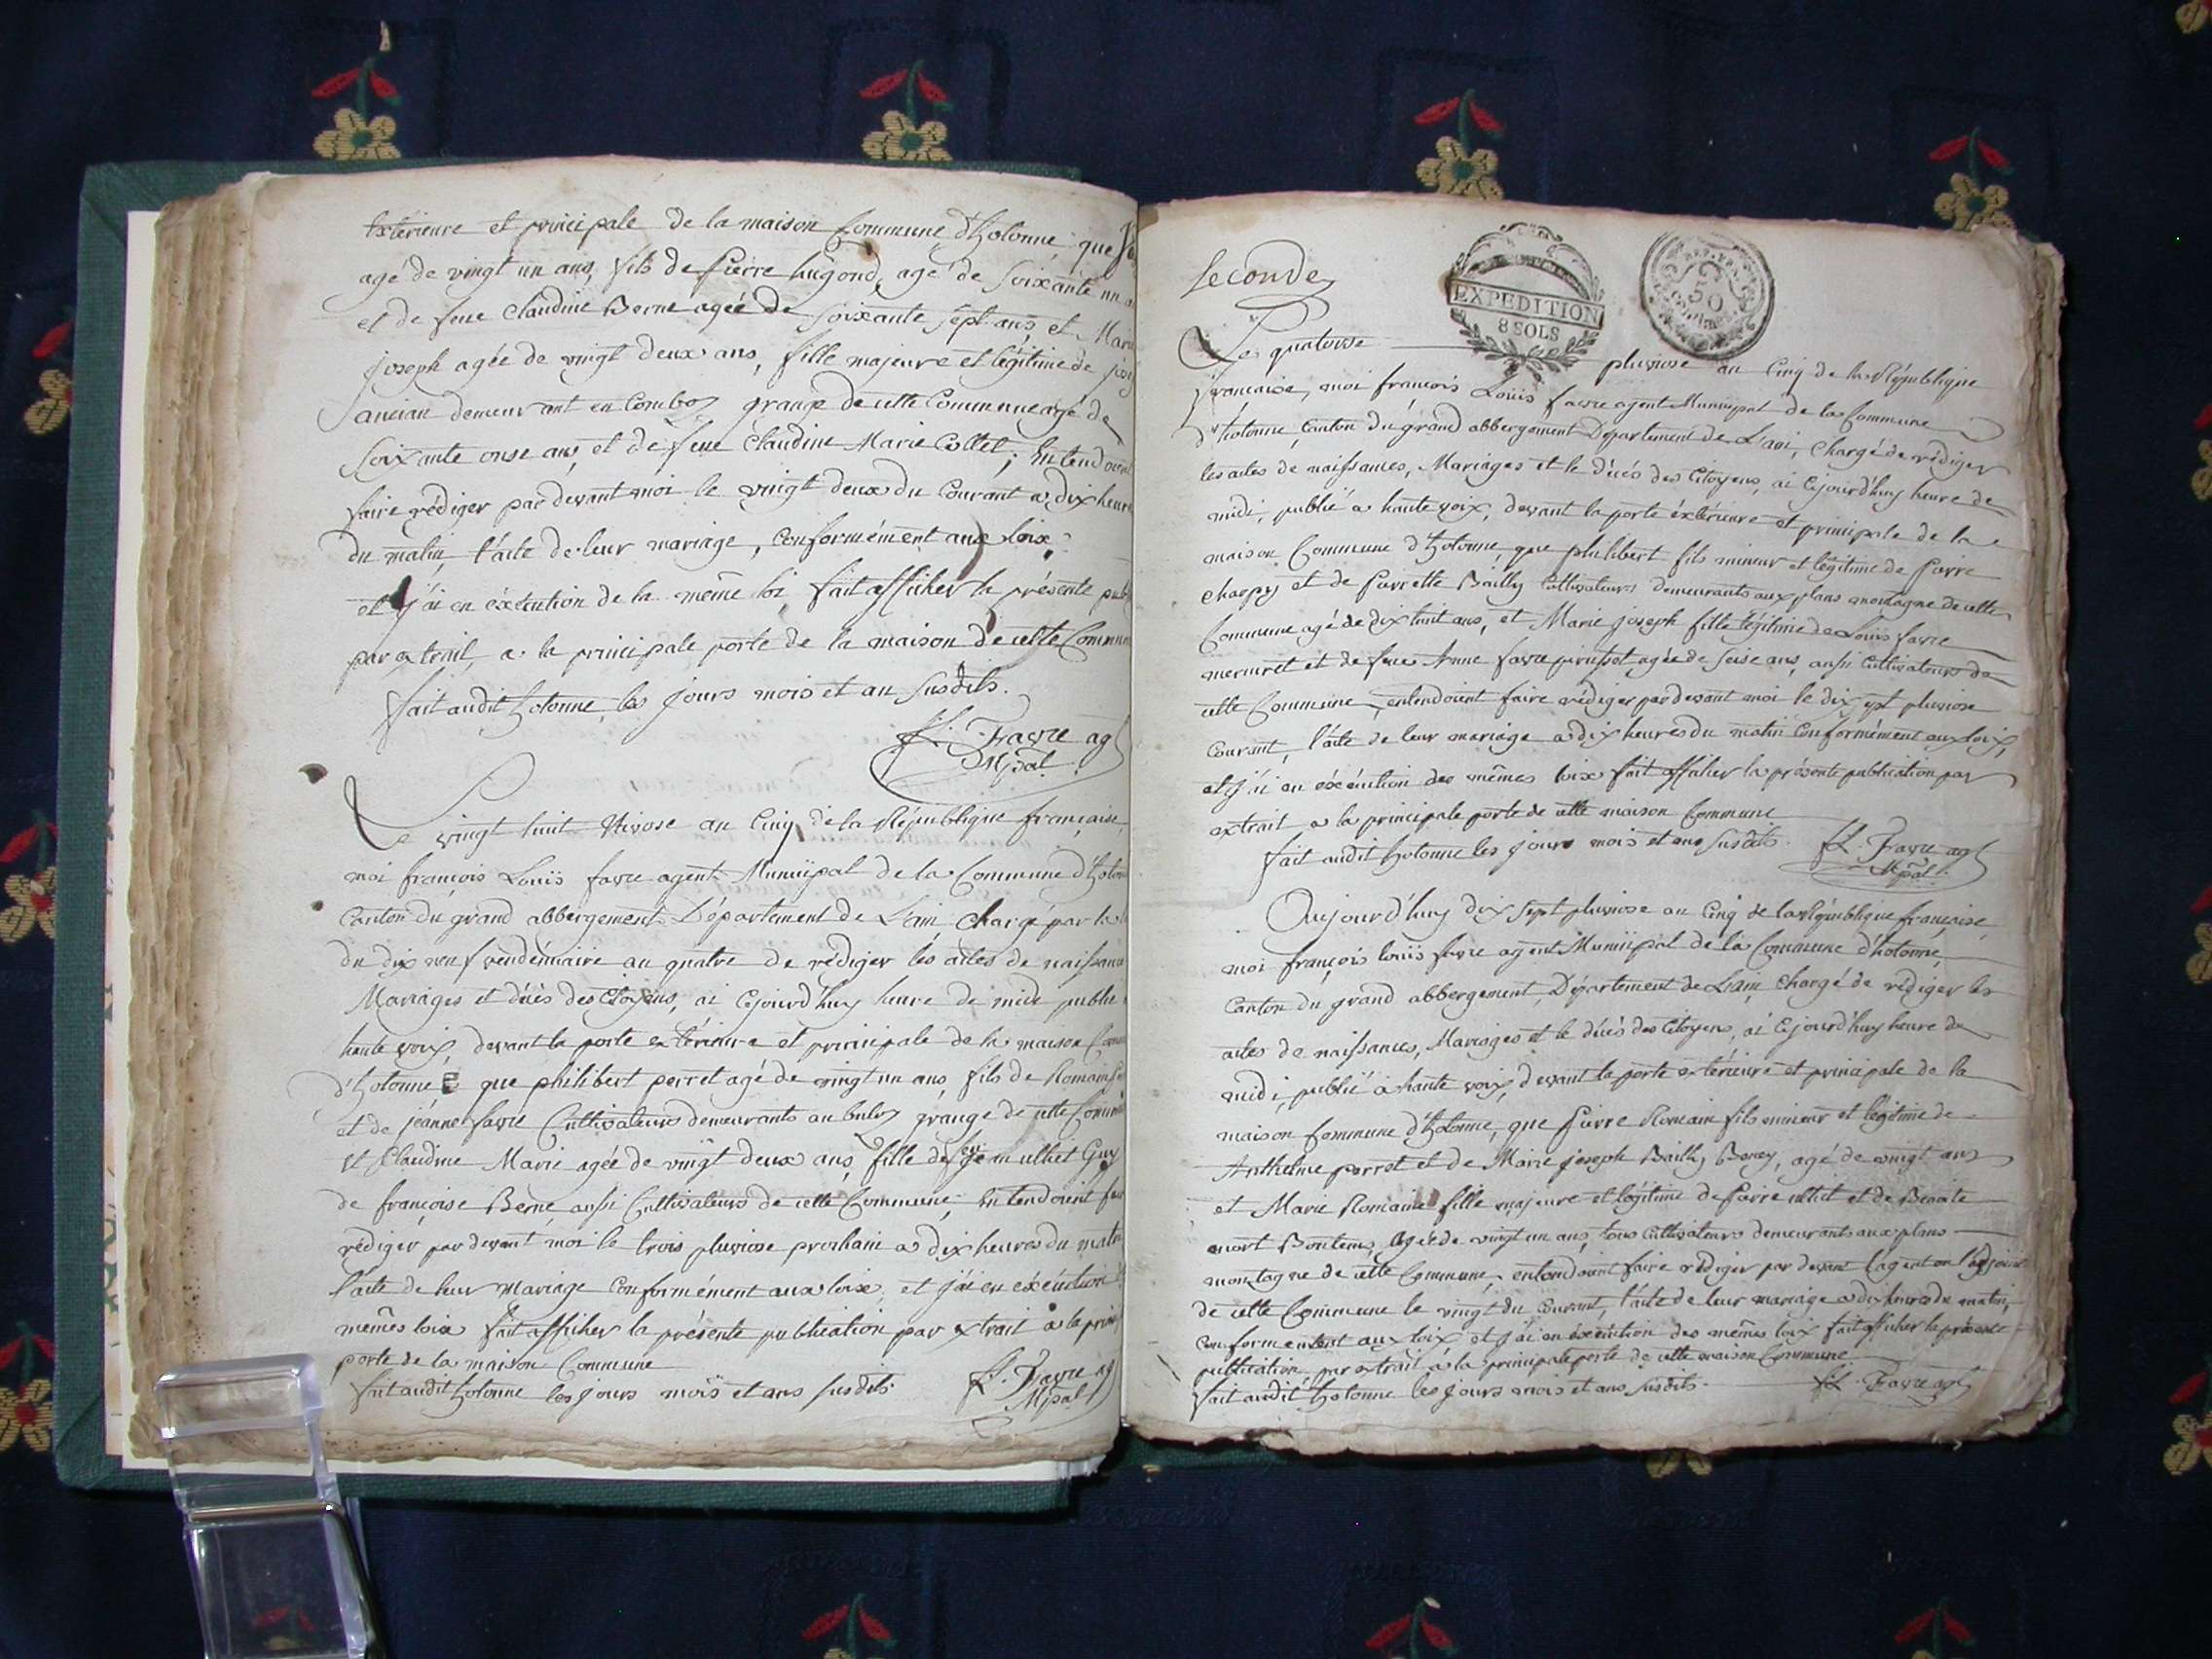 Extérieure et principale de la maison Commune d'hotonne, que
agé de vingt un ans, fils de Pierre hugond, agé de Soixante un
et de feue Claudine Berne agée de Soixante Sept ans, et Marie
joseph agée de vingt deux ans, fille majeure et légitime de
ancian demeurant en Combo grange de cette Commune agé de
Soixante onse ans, et de feue Claudine Marie Collet; Entendoient
faire rédiger par devant moi le vingt deux du Courant a dix heures
du matin, l'acte de leur mariage, Conformément aux loix
et j'ai en éxécution de la même loi, fait afficher la présente
par extrait, a la principale porte de la maison de cette Commune
fait audit hotonne, les jours mois et an Susdits.
fL. Favre ag
Mpal.
Le vingt huit Nivose an Cinq de la République française,
moi françois Louis favre agent Municipal de la Commune d'hoton
Canton du grand abbergement Département de L'ain, Chargé par la
du dix neuf vendémiaire an quatre de rédiger les actes de naissance
Mariages et décès des Citoyens, ai Cejourd'huy heure de midi publié
haute voix, devant la porte extérieure et principale de la maison
d'hotonne, que philibert perret agé de vingt un ans, fils de Romain
et de jeanne favre Cultivateurs demeurants au grange de cette Commune
et Claudine Marie agée de vingt deux ans, fille de feu julliet Guy
de françoise Berne, aussi Cultivateurs de cette Commune, Entendoient
rédiger par devant moi le trois pluviose prochain a dix heures du matin
l'acte de leur Mariage Conformément aux loix, et j'ai en éxécution
mêmes loix fait afficher la présente publication par extrait a la
porte de la maison Commune
fait audit hotonne les jours mois et ans susdits.
fL. Favre ag
Mpal
Seconde
EXPEDITION
8 SOLS
50
Le quatorse pluviose an Cinq de la République
francaise, moi françois Louis favre agent Municipal de la Commune
d'hotonne, Canton du grand abbergement Département de L'ain, Chargé de rédiger
les actes de naissances, Mariages et le décés des Citoyens, ai Cejourd'huy heure de
midi, publié a haute voix, devant la porte éxtérieure et principale de la
maison Commune d'hotonne, que philibert fils mineur et légitime de Pierre
charpy et de Pierrette Bailly Cultivateurs demeurants aux plans montagne de cette
Commune agé de dix huit ans, et Marie joseph fille légitime de Louis favre
et de feue Anne favre agée de Seise ans, aussi Cultivateurs de
cette Commune, entendoient faire rédiger par devant moi le dix sept pluviose
Courant, l'acte de leur mariage a dix heures du matin Conformément aux loix,
et j'ai en éxécution des mêmes loix fait afficher la présente publication par
extrait a la principale porte de cette maison Commune
fait audit hotonne les jours mois et ans Susdits. fL. Favre ag
Mpal.
Aujourd'huy dix Sept pluviose an Cinq de la République française,
moi françois louis favre agent Municipal de la Commune d'hotonne,
Canton du grand abbergement, Département de L'ain, Chargé de rédiger les
actes de naissances, Mariages et le décès des Citoyens, ai Cejourd'huy heure de
midi, publié a haute voix, devant la porte extérieure et principale de la
maison Commune d'hotonne, que Pierre Romain fils mineur et légitime de
Anthelme perret et de Marie joseph Bailly Beney, agé de vingt ans
et Marie Romaine fille majeure et légitime de Pierre et de Benoite
mort Bontems, agée de vingt un ans, tous Cultivateurs demeurants aux plans
montagne de cette Commune, entendoient faire rédiger par devant l'agent ou l'adjoint
de cette Commune le vingt du Courant, l'acte de leur mariage a dix heures du matin,
Conformément aux loix, et j'ai en éxécution des mêmes loix fait afficher la présente
publication, par extrait a la principale porte de cette maison Commune
fait audit hotonne les jours mois et ans Susdits. fL. Favre agt